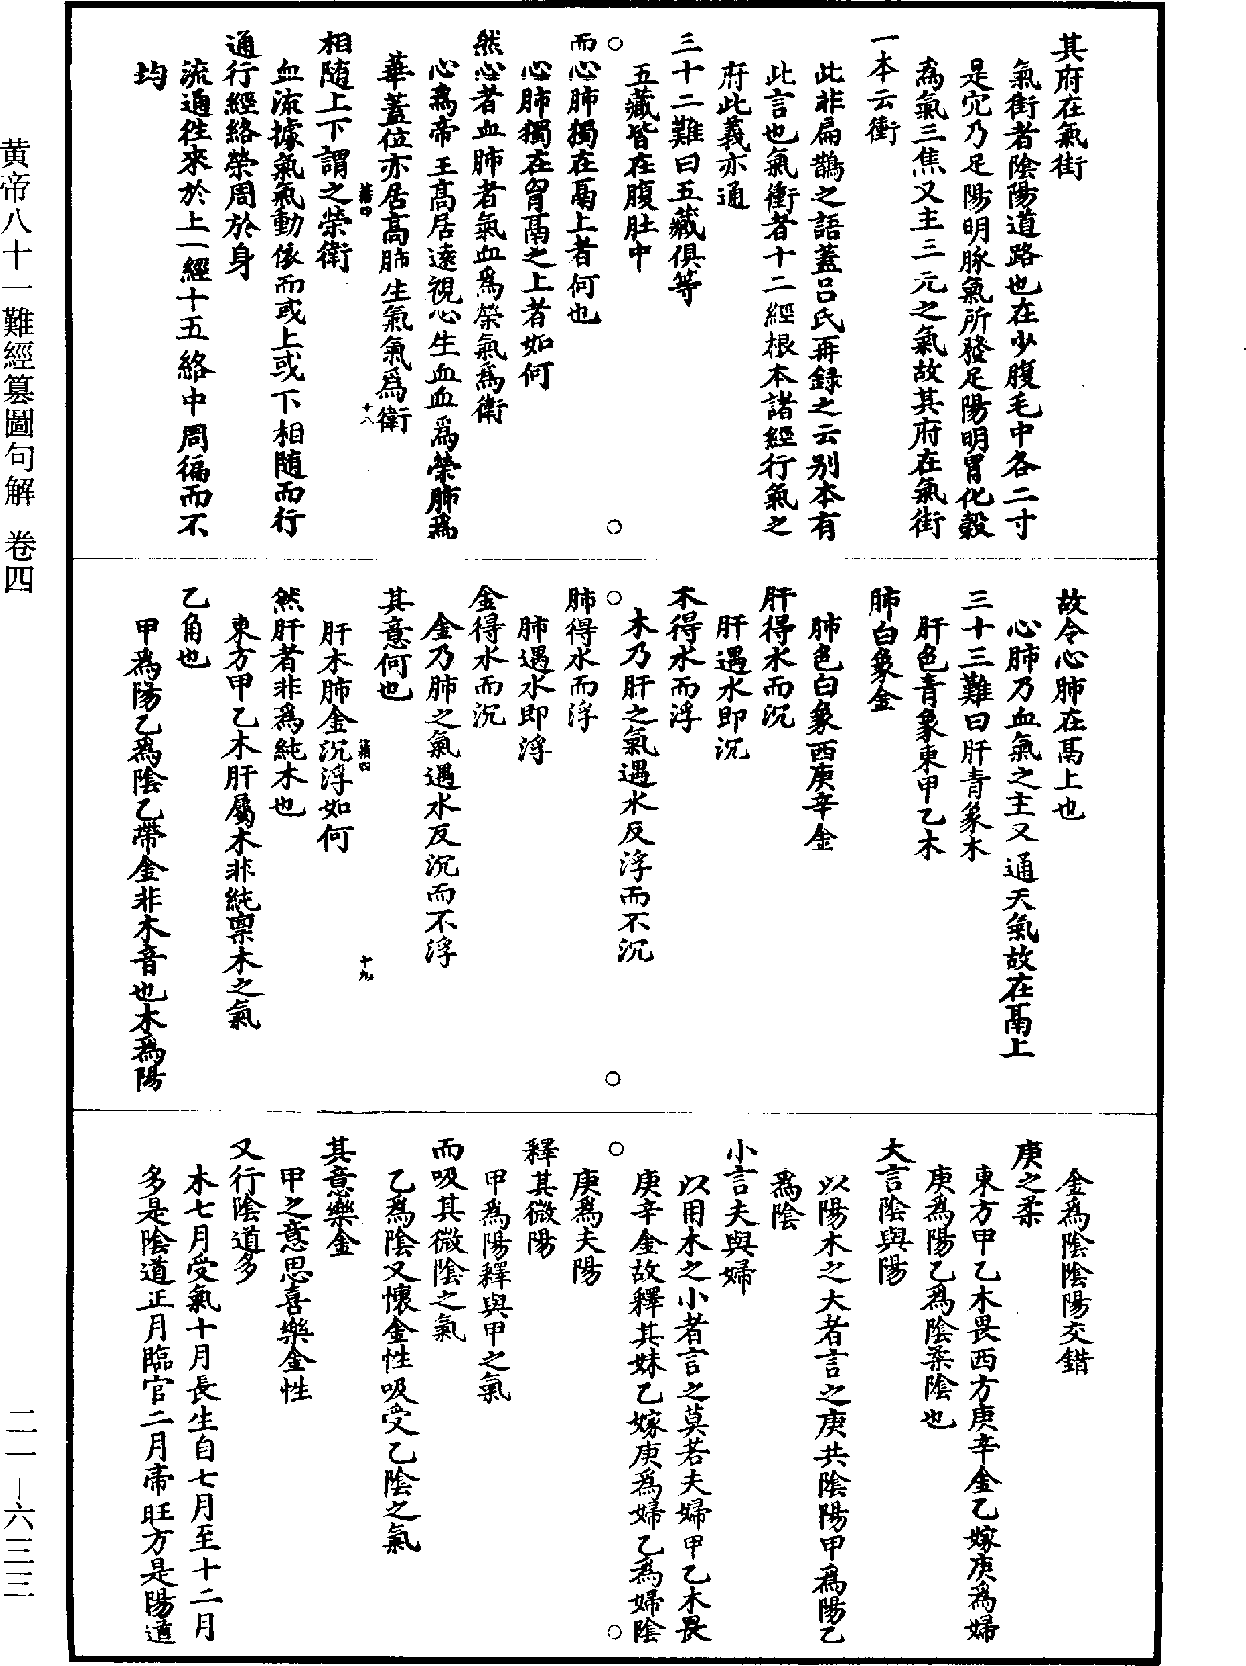 其府在氣街
氣街者陰陽道路也在少腹毛中各二寸
是穴乃足陽明脉氣所發足陽明胃化穀
爲氣三焦又主三元之氣故其府在氣街
一本云衝
此非扁鵲之語蓋呂氏再録之云别本有
此言也氣衝者十二經根本諸經行氣之
府此義亦通
三十二難曰五藏俱等
五藏皆在腹肚中
而心肺獨在鬲上者何也
心肺獨在胷鬲之上者如何
然心者血肺者氣血爲榮氣爲衛
心爲帝王高居遠視心生血血爲榮肺爲
華蓋位亦居高肺生氣氣爲衛
難四
十八
相隨上下謂之榮衛
血流據氣氣動依而或上或下相隨而行
通行經絡榮周於身
流通往來於上一經十五絡中周徧而不
均
故令心肺在鬲上也
心肺乃血氣之主又通天氣故在鬲上
三十三難曰肝青象木
肝色青象東甲乙木
肺白象金
肺色白象西庚辛金
肝得水而沉
肝遇水即沉
木得水而浮
木乃肝之氣遇水反浮而不沉
肺得水而浮
肺遇水即浮
金得水而沉
金乃肺之氣遇水反沉而不浮
其意何也
難四
十九
肝木肺金沉浮如何
然肝者非爲純木也
東方甲乙木肝屬木非純禀木之氣
乙角也
甲爲陽乙爲陰乙帶金非木音也木爲陽
金爲陰陰陽交錯
庚之柔
東方甲乙木畏西方庚辛金乙嫁庚爲婦
庚爲陽乙爲陰柔陰也
大言陰與陽
以陽木之大者言之庚共陰陽甲爲陽乙
爲陰
小言夫與婦
以用木之小者言之莫若夫婦甲乙木畏
庚辛金故釋其妹乙嫁庚爲婦乙爲婦陰
庚爲夫陽
釋其微陽
甲爲陽釋與甲之氣
而吸其微陰之氣
乙爲陰又懷金性吸受乙陰之氣
其意樂金
甲之意思喜樂金性
又行陰道多
木七月受氣十月長生自七月至十二月
多是陰道正月臨官二月帝旺方是陽道
黄帝八十一難經纂圖句解 卷四
二一－六三三